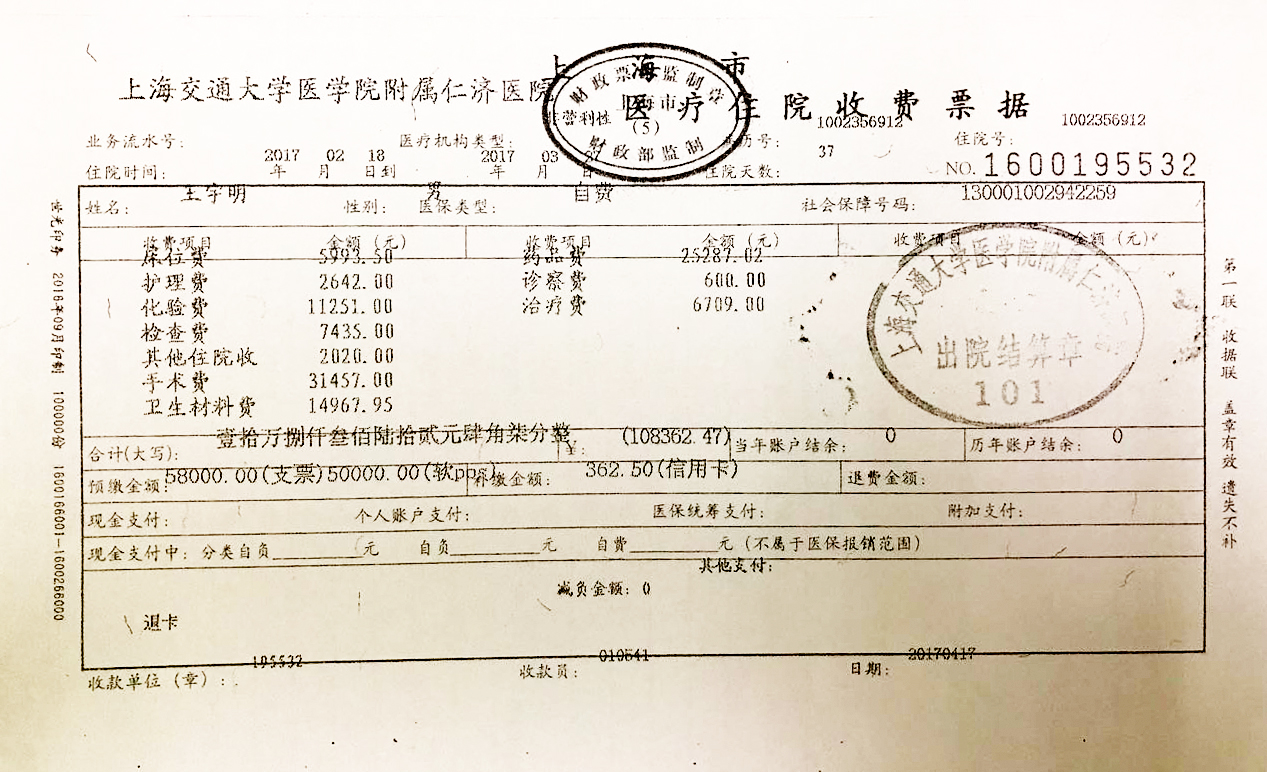 上海市
上海交通大学医学院附属仁济医院
医疗住院收费票据
财政票据监制章
上海市
(5)
财政部监制
非营利性
业务流水号： 医疗机构类型： 病历号： 1002356912 住院号： 1002356912
住院时间： 2017年 02月 18日到 2017年 03月 27 住院天数： 37 NO. 1600195532
姓名： 王宇明 性别： 男 医保类型： 自费 社会保障号码： 130001002942259
收费项目 金额（元） 收费项目 金额（元） 收费项目 金额（元）
床位费 5993.50 药品费 25287.02
护理费 2642.00 诊察费 600.00
化验费 11251.00 治疗费 6709.00
检查费 7435.00
其他住院收 2020.00
手术费 31457.00
卫生材料费 14967.95
上海交通大学医学院附属仁济
出院结算章
101
合计(大写)： 壹拾万捌仟叁佰陆拾贰元肆角柒分整 ¥： (108362.47) 当年账户结余： 0 历年账户结余： 0
预缴金额： 58000.00(支票)50000.00(软pp 补缴金额： 362.50(信用卡) 退费金额：
现金支付： 个人账户支付： 医保统筹支付： 附加支付：
现金支付中： 分类自负________元 自负________元 自费________元（不属于医保报销范围）
其他支付：
减负金额： 0
退卡
收款单位（章）： 195532 收款员： 010541 日期： 20170417
2016年09月印制 100000份 1600166001-1600266000
第一联 收据联 盖章有效 遗失不补